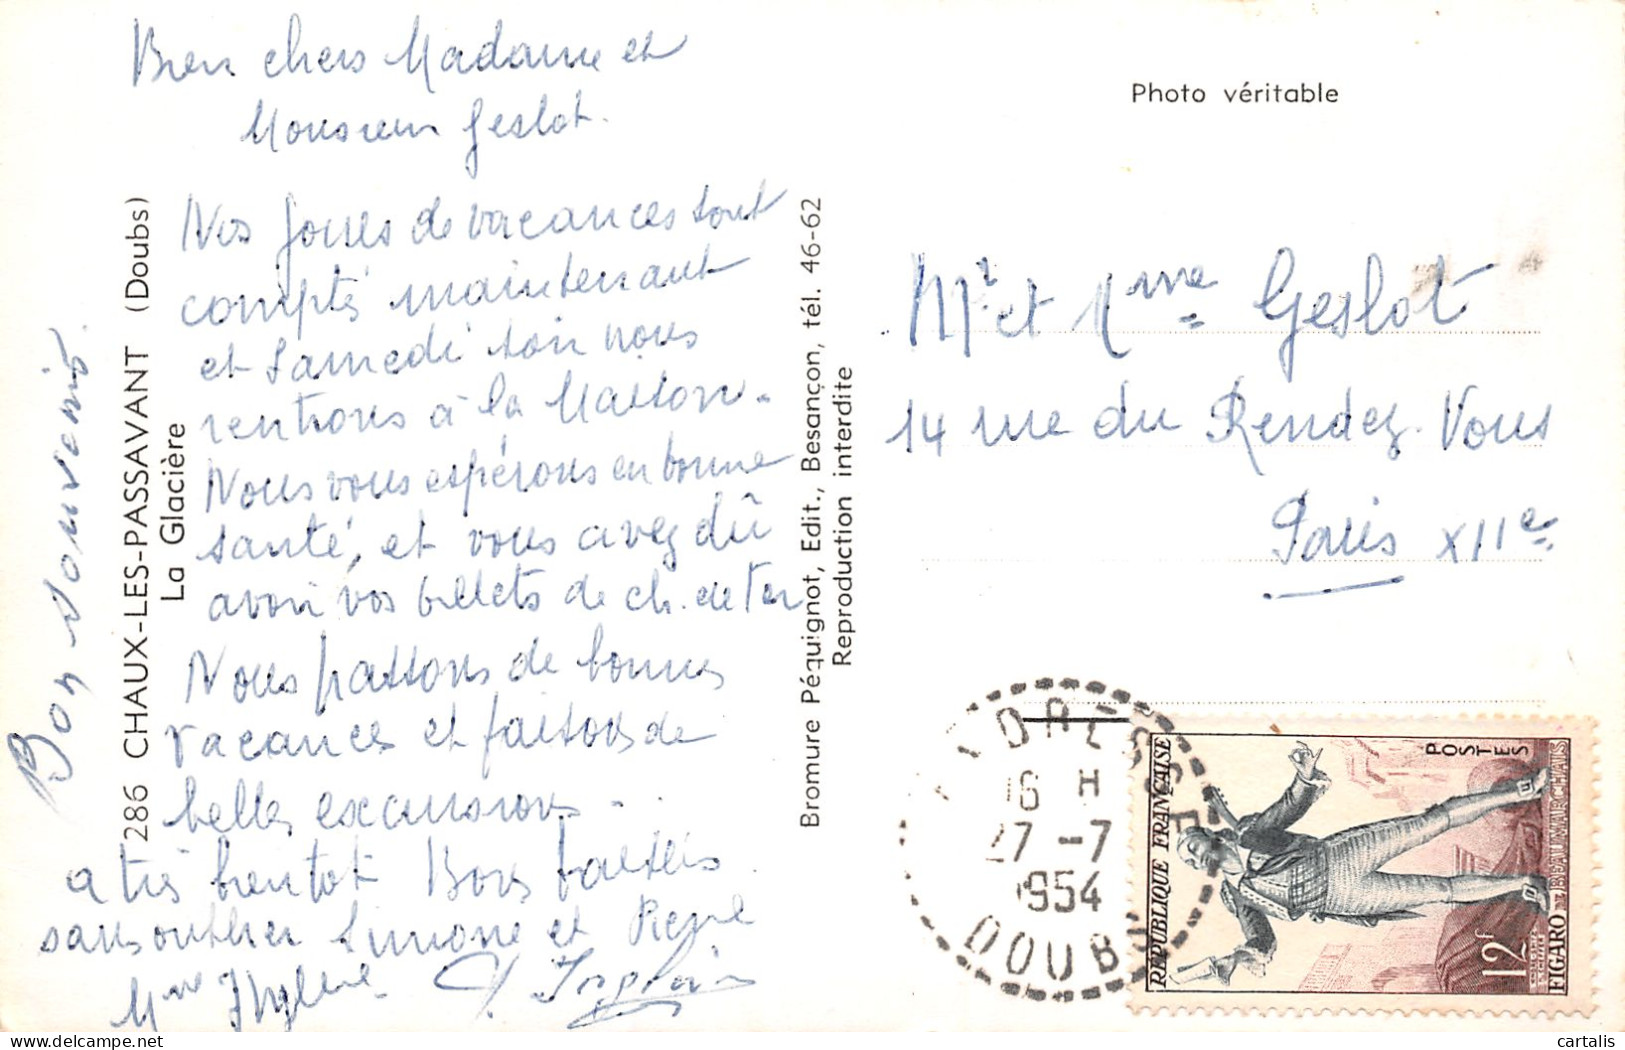 Bien chers Madame et
Monsieur Geslot.
Nos jours de vacances sont
comptés maintenant
et Samedi soir nous
rentrons à la Maison.
Nous vous espérons en bonne
santé, et vous avez dû
avoir vos billets de ch. de fer
Nous passons de bonnes
vacances et faisons de
belles excursions.
a très bientot Bons baisers
sans oublier Simone et René
Mme
Bon souvenir.
286 CHAUX-LES-PASSAVANT (Doubs)
La Glacière
Bromure Péquignot, Edit., Besançon, tél. 46-62
Reproduction interdite
Photo véritable
Mr et Mme Geslot
14 rue du Rendez-Vous
Paris XIIe
16 H
27 -7
1954
DOUBS
POSTES
REPUBLIQUE FRANÇAISE
BEAUMARCHAIS
FIGARO
12F
cartalis
delcampe.net